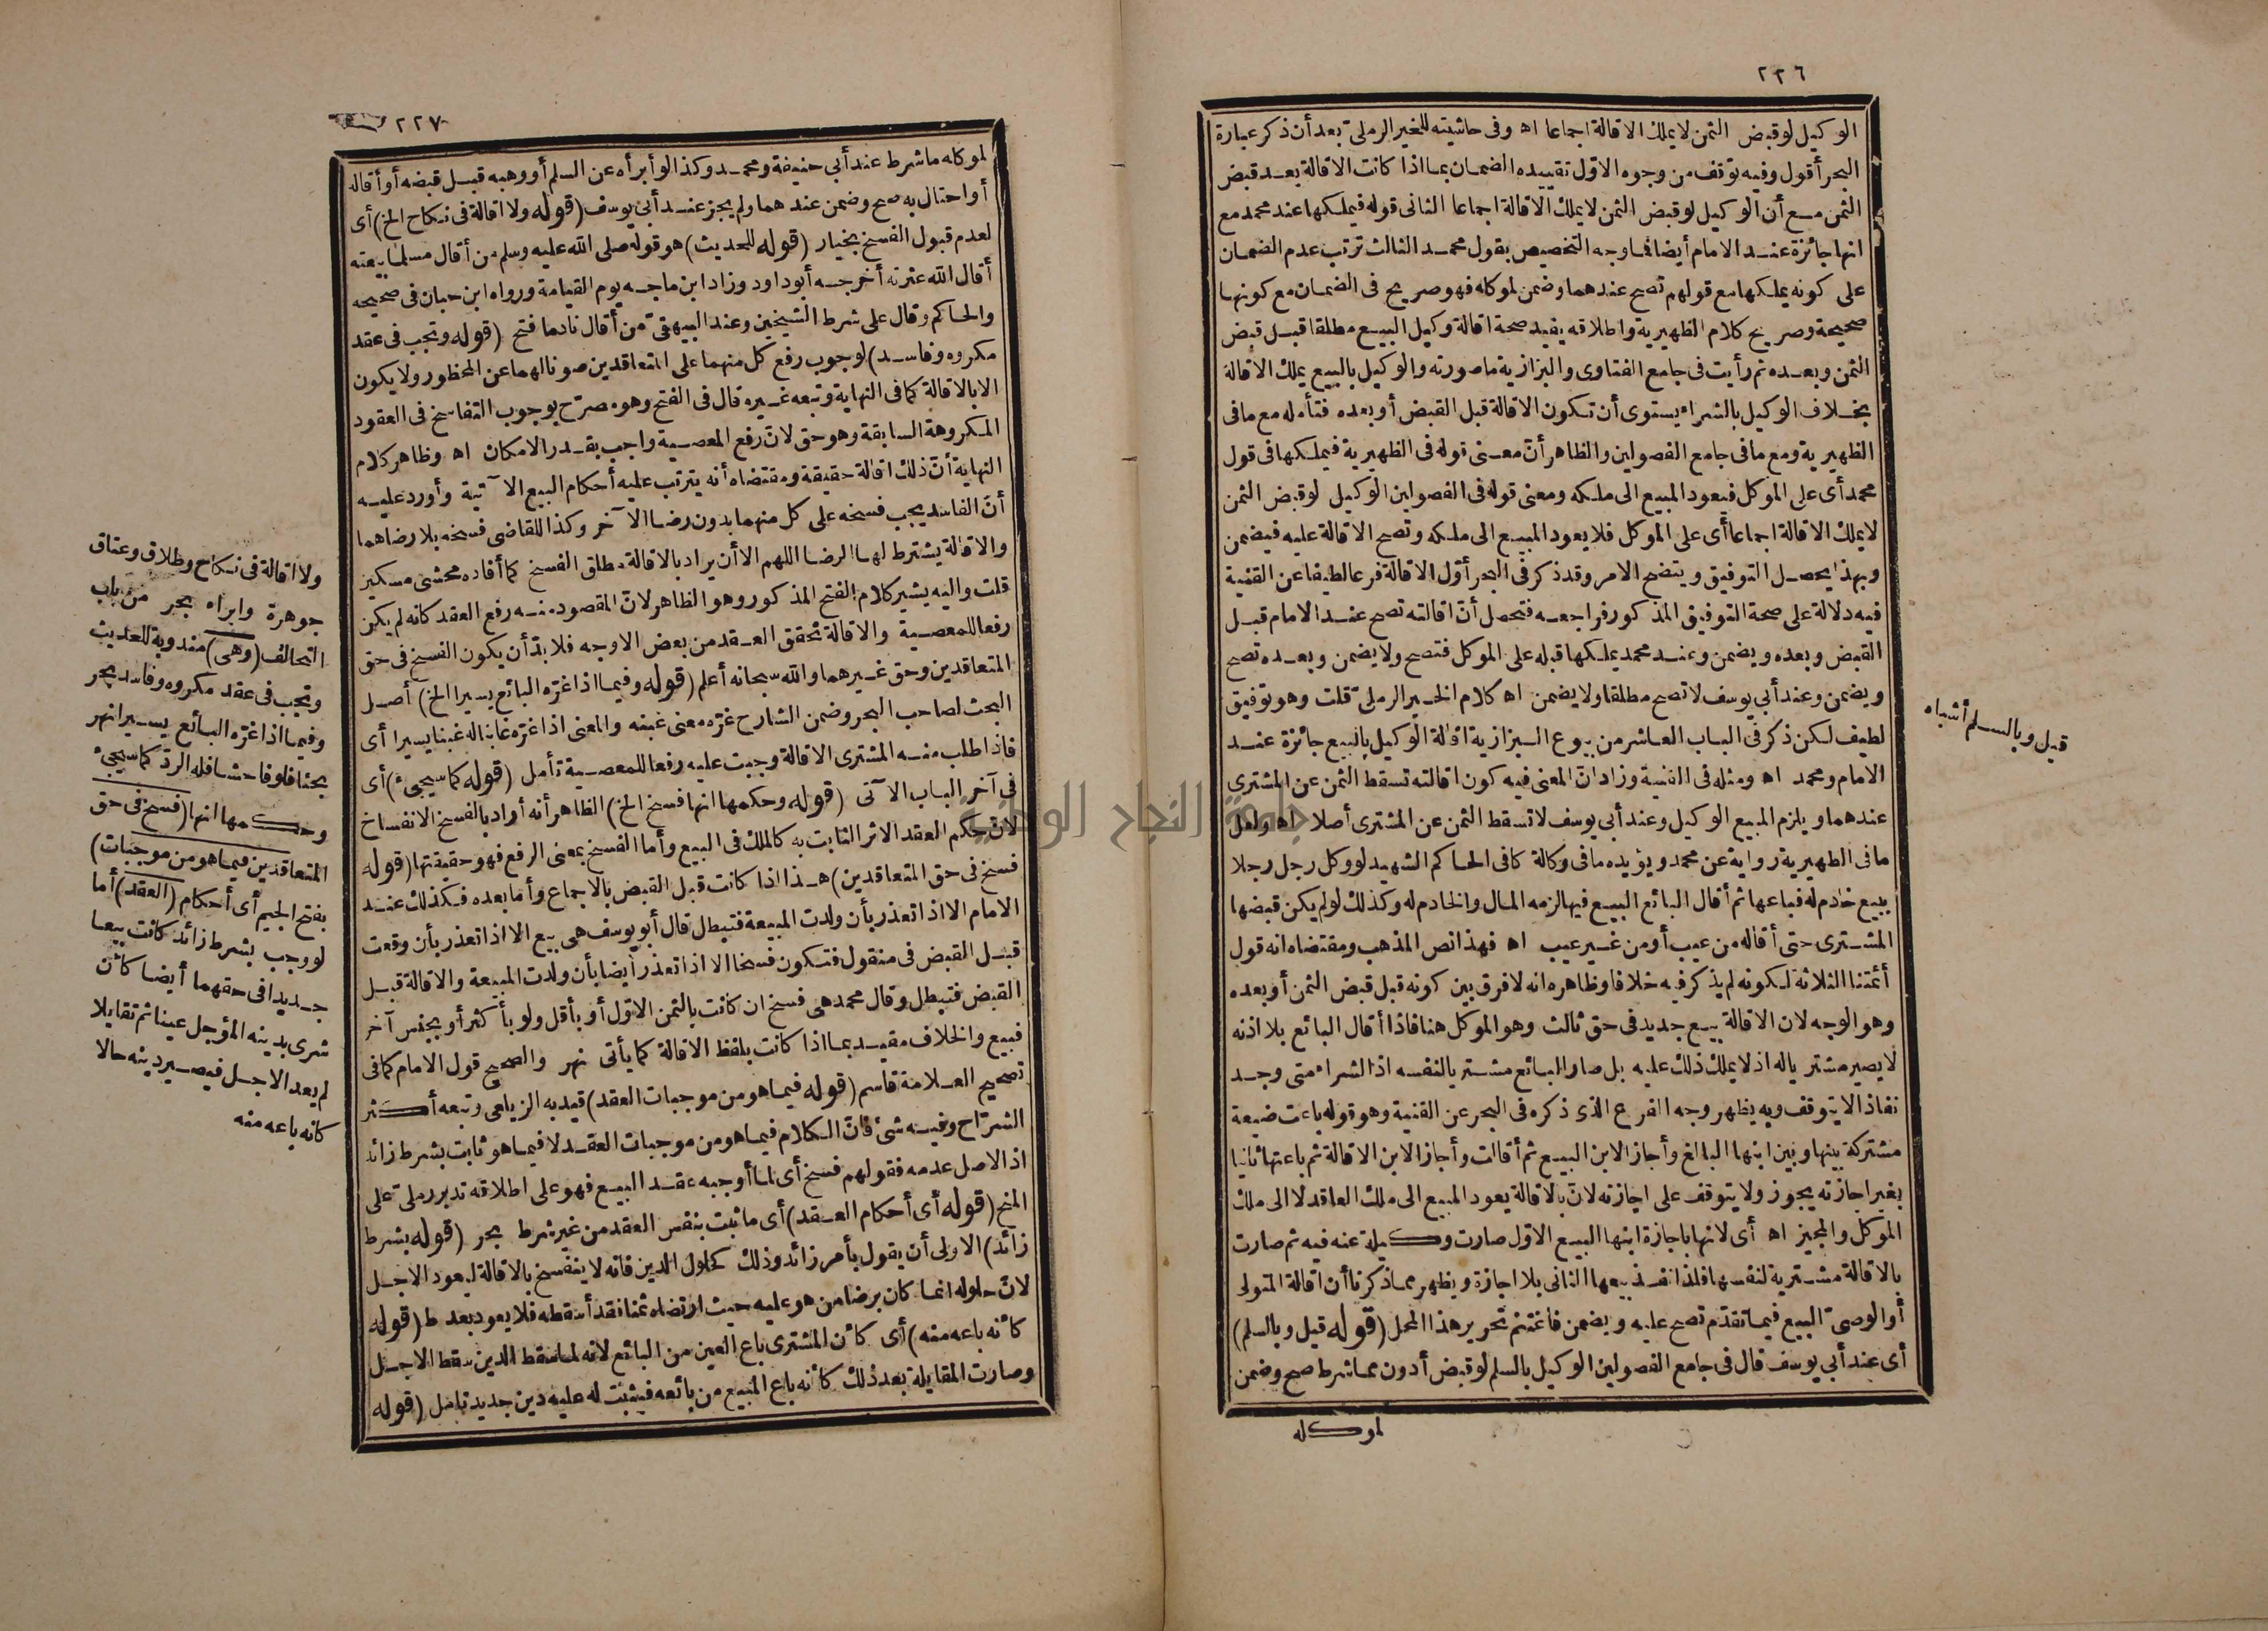 ٢٢٦
الوكيل لو قبض الثمن لا يملك الاقالة اجماعا اه وفى حاشيته للخير الرملىّ بعد أن ذكر عبارة
البحر أقول وفيه توقف من وجوه الاوّل تقييده الضمان بما اذا كانت الاقالة بعد قبض
الثمن مع أن الوكيل لو قبض الثمن لا يملك الاقالة اجماعا الثانى قوله فيملكها عند محمد مع
انها جائزة عند الامام أيضا فما وجه التخصيص بقول محمد الثالث ترتب عدم الضمان
على كونه يملكها مع قولهم تصح عندهما وضمن لموكله فهو صريح فى الضمان مع كونها
صحيحة وصريح كلام الظهيرية واطلاقه يفيد صحة اقالة وكيل البيع مطلقا قبل قبض
الثمن وبعده ثم رأيت فى جامع الفتاوى والبزازية ما صورته والوكيل بالبيع يملك الاقالة
بخلاف الوكيل بالشراء يستوى أن تكون الاقالة قبل القبض أو بعده فتأمله مع ما فى
الظهيرية ومع ما فى جامع الفصولين والظاهر أنّ معنى قوله فى الظهيرية فيملكها فى قول
محمد أى على الموكل فيعود المبيع الى ملكه ومعنى قوله فى الفصولين الوكيل لو قبض الثمن
لا يملك الاقالة اجماعا أى على الموكل فلا يعود المبيع الى ملكه وتصح الاقالة عليه فيضمن
وبهذا يحصل التوفيق ويتضح الامر وقد ذكر فى البحر أوّل الاقالة فرعا لطيفا عن القنية
فيه دلالة على صحة التوفيق المذكور فراجعه فتحصل أنّ اقالته تصح عند الامام قبل
القبض وبعده ويضمن وعند محمد يملكها قبله على الموكل فتصح ولا يضمن وبعده تصح
ويضمن وعند أبى يوسف لا تصح مطلقا ولا يضمن اه كلام الخير الرملىّ قلت وهو توفيق
لطيف لكن ذكر فى الباب العاشر من بيوع البزازية اقالة الوكيل بالبيع جائزة عند
الامام ومحمد اه ومثله فى القنية وزاد انّ المعنى فيه كون اقالته تسقط الثمن عن المشترى
عندهما ويلزم المبيع الوكيل وعند أبى يوسف لا تسقط الثمن عن المشترى أصلا اه ولعل
ما فى الظهيرية رواية عن محمد ويؤيده ما فى وكالة كافى الحاكم الشهيد لو وكل رجل رجلا
ببيع خادم له فباعها ثم أقال البائع البيع فيها لزمه المال والخادم له وكذلك لو لم يكن قبضها
المشترى حتى أقاله من عيب أو من غير عيب اه فهذا نص المذهب ومقتضاه انه قول
أئمتنا الثلاثة لكونه لم يذكر فيه خلافا وظاهره انه لا فرق بين كونه قبل قبض الثمن أو بعده
وهو الوجه لان الاقالة بيع جديد فى حق ثالث وهو الموكل هنا فاذا أقال البائع بلا اذنه
لا يصير مشتريا له اذ لا يملك ذلك عليه بل صار البائع مشتريا لنفسه اذ الشراء متى وجد
نفاذا لا يتوقف وبه يظهر وجه الفرع الذى ذكره فى البحر عن القنية وهو قوله باعت ضيعة
مشتركة بينها وبين ابنها البالغ وأجاز الابن البيع ثم أقالت وأجاز الابن الاقالة ثم باعتها ثانيا
بغير اجازته يجوز ولا يتوقف على اجازته لانّ بالاقالة يعود المبيع الى ملك العاقد لا الى ملك
الموكل والمجيز اه أى لانها باجازة ابنها البيع الاوّل صارت وكيلة عنه فيه ثم صارت
بالاقالة مشترية لنفسها فلذا نفذ بيعها الثانى بلا اجازة ويظهر مما ذكرنا أن اقالة المتولى
أو الوصىّ البيع فيما تقدّم تصح عليه ويضمن فاغتنم تحرير هذا المحل (قوله قيل وبالسلم)
أى عند أبى يوسف قال فى جامع الفصولين الوكيل بالسلم لو قبض أدون مما شرط صح وضمن
لموكله
قيل وبالسلم أشباه
٢٢٧
لموكله ما شرط عند أبى حنيفة ومحمد وكذا لو أبرأه عن السلم أو وهبه قبل قبضه أو أقاله
أو احتال به صح وضمن عندهما ولم يجز عند أبى يوسف (قوله ولا اقالة فى نكاح الخ) أى
لعدم قبول الفسخ بخيار (قوله للحديث) هو قوله صلى الله عليه وسلم من أقال مسلما بيعته
أقال الله عثرته أخرجه أبو داود وزاد ابن ماجه يوم القيامة ورواه ابن حبان فى صحيحه
والحاكم وقال على شرط الشيخين وعند البيهقىّ من أقال نادما فتح (قوله وتجب فى عقد
مكروه وفاسد) لوجوب رفع كل منهما على المتعاقدين صونا لهما عن المحظور ولا يكون
الا بالاقالة كما فى النهاية وتبعه غيره قال فى الفتح وهو مصرّح بوجوب التفاسخ فى العقود
المكروهة السابقة وهو حق لانّ رفع المعصية واجب بقدر الامكان اه وظاهر كلام
النهاية أنّ ذلك اقالة حقيقة ومقتضاه أنه يترتب عليه أحكام البيع الآتية وأورد عليه
أنّ الفاسد يجب فسخه على كل منهما بدون رضا الآخر وكذا للقاضى فسخه بلا رضاهما
والاقالة يشترط لها الرضا اللهم الا أن يراد بالاقالة مطلق الفسخ كما أفاده محشى مسكين
قلت واليه يشير كلام الفتح المذكور وهو الظاهر لانّ المقصود منه رفع العقد كانه لم يكن
رفعا للمعصية والاقالة تحقق العقد من بعض الاوجه فلا بدّ أن يكون الفسخ فى حق
المتعاقدين وحق غيرهما والله سبحانه أعلم (قوله وفيما اذا غرّه البائع يسيرا الخ) أصل
البحث لصاحب البحر وضمن الشارح غرّه معنى غبنه والمعنى اذا غرّه غابنا له غبنا يسيرا أى
فاذا طلب منه المشترى الاقالة وجبت عليه رفعا للمعصية تأمل (قوله كما سيجىء) أى
فى آخر الباب الآتى (قوله وحكمها انها فسخ الخ) الظاهر أنه أراد بالفسخ الانفساخ
لانّ حكم العقد الاثر الثابت به كالملك فى البيع وأما الفسخ بمعنى الرفع فهو حقيقتها (قوله
فسخ فى حق المتعاقدين) هذا اذا كانت قبل القبض بالاجماع وأما بعده فكذلك عند
الامام الا اذا تعذر بأن ولدت المبيعة فتبطل قال أبو يوسف هى بيع الا اذا تعذر بأن وقعت
قبل القبض فى منقول فتكون فسخا الا اذا تعذر أيضا بأن ولدت المبيعة والاقالة قبل
القبض فتبطل وقال محمد هى فسخ ان كانت بالثمن الاوّل أو بأقل ولو بأكثر أو بجنس آخر
فبيع والخلاف مقيد بما اذا كانت بلفظ الاقالة كما يأتى نهر والصحيح قول الامام كما فى
تصحيح العلامة قاسم (قوله فيما هو من موجبات العقد) قيد به الزيلعى وتبعه أكثر
الشرّاح وفيه شئ فانّ الكلام فيما هو من موجبات العقد لا فيما هو ثابت بشرط زائد
اذ الاصل عدمه فقولهم فسخ أى لما أوجبه عقد البيع فهو على اطلاقه تدبر رملىّ على
المنح (قوله أى أحكام العقد) أى ما ثبت بنفس العقد من غير شرط بحر (قوله بشرط
زائد) الاولى أن يقول بأمر زائد وذلك كحلول الدين فانه لا ينفسخ بالاقالة ليعود الاجل
لانّ حلوله انما كان برضا من هو عليه حيث ارتضاه ثمنا فقد أسقطه فلا يعود بعد ط (قوله
كأنه باعه منه) أى كأن المشترى باع العين من البائع لانه لما سقط الدين سقط الاجل
وصارت المقايلة بعد ذلك كأنه باع المبيع من بائعه فيثبت له عليه دين جديد تأمل (قوله
ولا اقالة فى نكاح وطلاق وعتاق
جوهرة وابراء بحر من باب
التحالف (وهى) مندوبة للحديث
وتجب فى عقد مكروه وفاسد بحر
وفيما اذا غرّه البائع يسيرا نهر
بحثا فلو فاحشا فله الردّ كما سيجىء
وحكمها انها (فسخ فى حق
المتعاقدين فيما هو من موجبات)
بفتح الجيم أى أحكام (العقد) أما
لو وجب بشرط زائد كانت بيعا
جديدا فى حقهما أيضا كأن
شرى بدينه المؤجل عينا ثم تقايلا
لم يعد الاجل فيصير دينه حالا
كانه باعه منه
جامعة النجاح الوطنية